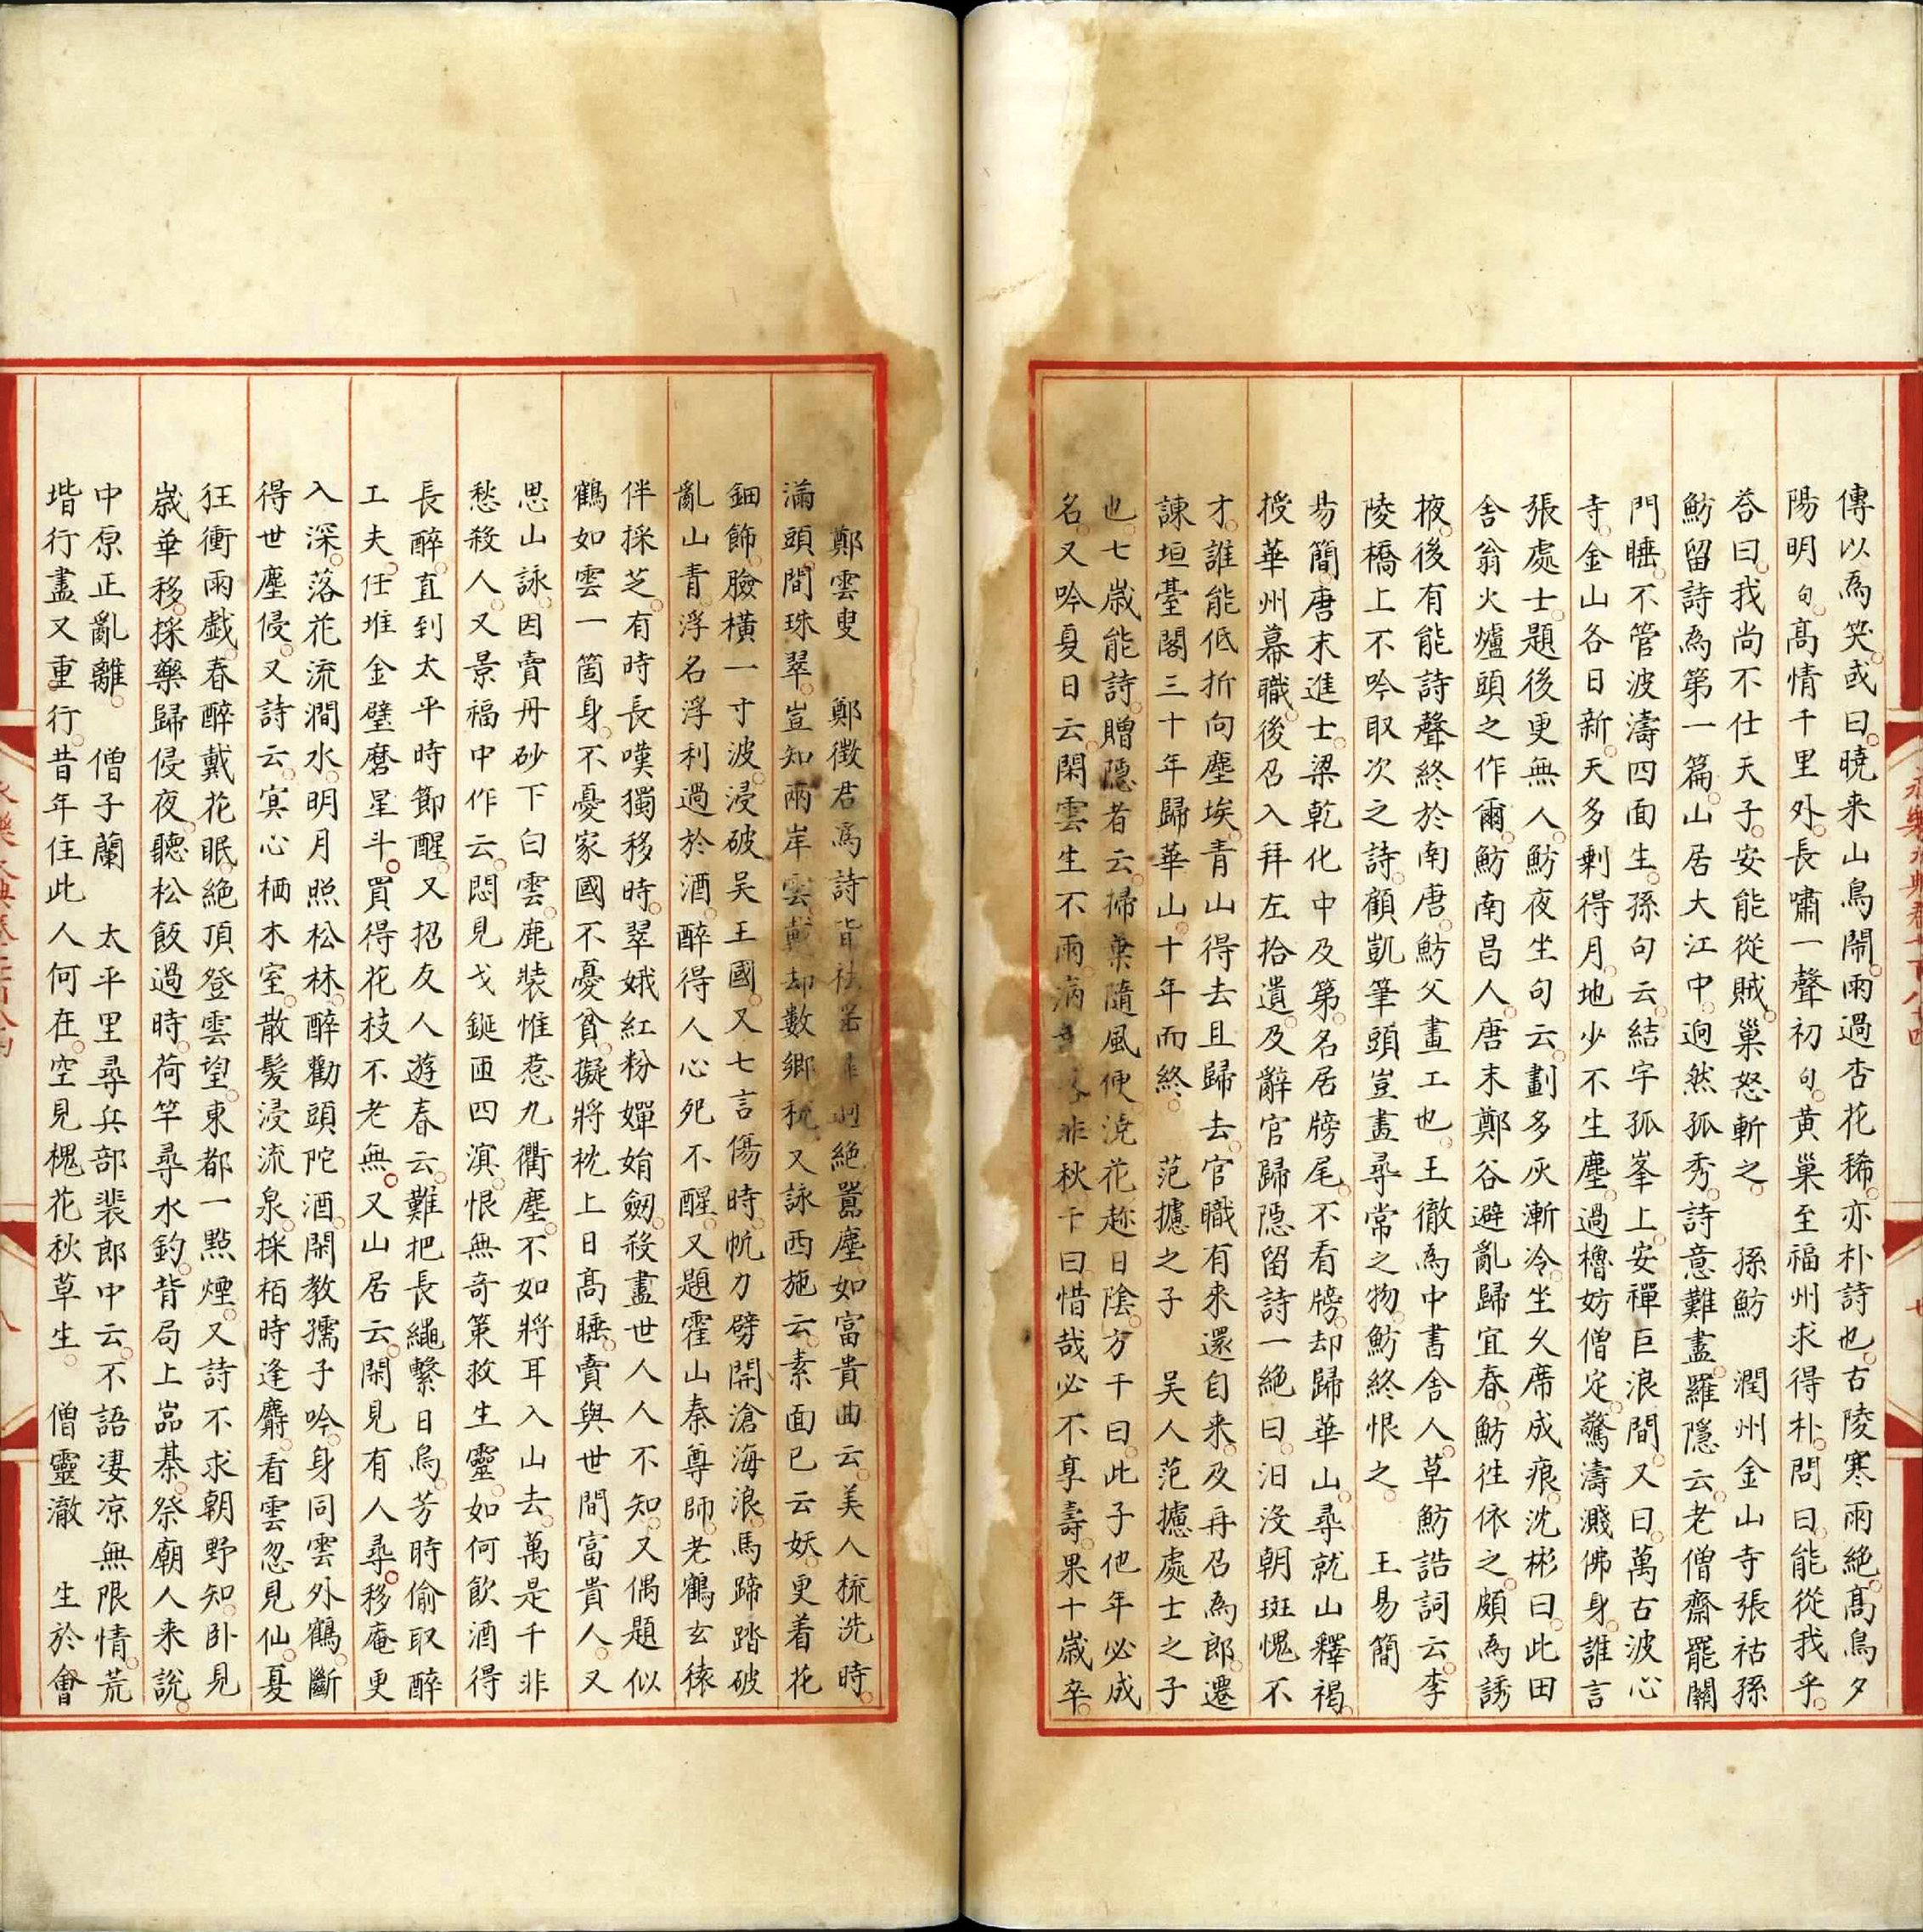 傳以為笑或曰曉来山鳥鬧雨過杏花稀亦朴詩也古陵寒雨絶髙鳥夕
陽明句髙情千里外長嘯一聲初句黄巢至福州求得朴問曰能從我乎
荅曰我尚不仕天子安能從賊巢怒斬之 孫魴 潤州金山寺張祜孫
魴留詩為第一篇山居大江中逈然孤秀詩意難盡羅隱云老僧齋罷關
門睡不管波濤四面生孫句云結宇孤峯上安禪巨浪間又曰萬古波心
寺金山各日新天多剰得月地少不生塵過櫓妨僧定驚濤濺佛身誰言
張處士題後更無人魴夜坐句云劃多灰漸冷坐久席成痕沈彬曰此田
舍翁火爐頭之作爾魴南昌人唐末鄭谷避亂歸宜春魴徃依之頗為誘
掖後有能詩聲終於南唐魴父畫工也王徹為中書舍人草魴誥詞云李
陵橋上不吟取次之詩顧凱筆頭豈畫尋常之物魴終恨之 王易簡
昜簡唐末進士梁乾化中及第名居牓尾不看牓却歸華山尋就山釋褐
授華州幕職後召入拜左拾遺及辭官歸隱留詩一絶曰汩没朝班愧不
才誰能低折向塵埃青山得去且歸去官職有来還自来及再召為郎遷
諫垣臺閣三十年歸華山十年而終 范攄之子 吴人范攄處士之子
也七歳能詩贈隠者云掃棄隨風便澆花趂日陰方干曰此子他年必成
名又吟夏日云閑雲生不雨病非秋干曰惜哉必不享壽果十歳卒
鄭雲叟 鄭徴君為詩皆祛絶囂塵如富貴曲云美人梳洗時
滿頭間珠翠豈知兩岸雲戴却數鄉稅又詠西施云素面已云妖更着花
鈿飾臉横一寸波浸破吴王國又七言傷時帆力劈開滄海浪馬蹄踏破
亂山青浮名浮利過於酒醉得人心死不醒又題霍山秦尊師老鶴玄猿
伴採芝有時長嘆獨移時翠娥紅粉嬋娟劒殺盡世人人不知又偶題似
鶴如雲一箇身不憂家國不憂貧擬將枕上日髙睡賣與世間富貴人又
思山詠因賣丹砂下白雲鹿裝惟惹九衢塵不如將耳入山去萬是千非
愁殺人又景福中作云悶見戈鋋匝四溟恨無奇策救生靈如何飲酒得
長醉直到太平時節醒又招友人遊春云難把長繩繫日烏芳時偷取醉
工夫任堆金璧磨星斗買得花枝不老無又山居云閑見有人尋移庵更
入深落花流澗水明月照松林醉勸頭陀酒閑教孺子吟身同雲外鶴斷
得世塵侵又詩云冥心栖木室散髪浸流泉採栢時逢麝看雲忽見仙夏
狂衝雨戲春醉戴花眠絶頂登雲望東都一點煙又詩不求朝野知卧見
歳華移採藥歸侵夜聽松飯過時荷竿尋水釣背局上嵓棊祭廟人来説
中原正亂離 僧子蘭 太平里尋兵部裴郎中云不語凄凉無限情荒
堦行盡又重行昔年住此人何在空見槐花秋草生 僧靈澈 生於會